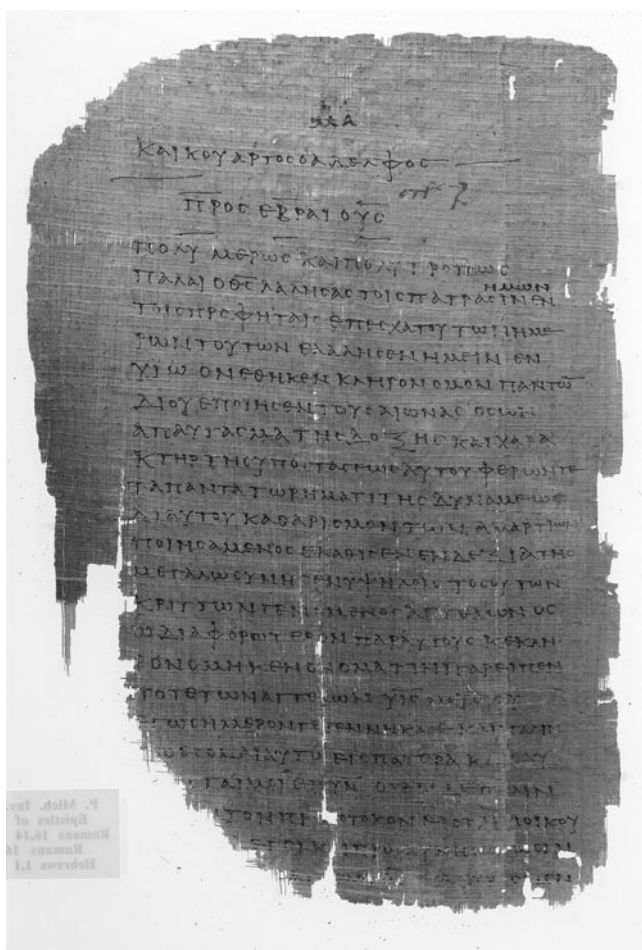 ΚΑΙ ΚΟΥΑΡΤΟC Ο ΑΔΕΛΦΟC
ΠΡΟC ΕΒΡΑΙΟΥC
ΠΟΛΥΜΕΡΩC ΚΑΙ ΠΟΛΥΤΡΟΠΩC
ΗΜΩΝ
ΠΑΛΑΙ Ο Θ̅C̅ ΛΑΛΗCΑC ΤΟΙC ΠΑΤΡΑCΙΝ ΕΝ
ΤΟΙC ΠΡΟΦΗΤΑΙC ΕΠ ΕCΧΑΤΟΥ ΤΩΝ ΗΜΕ
ΡΩΝ ΤΟΥΤΩΝ ΕΛΑΛΗCΕΝ ΗΜΕΙΝ ΕΝ
ΥΙΩ ΟΝ ΕΘΗΚΕΝ ΚΛΗΡΟΝΟΜΟΝ ΠΑΝΤΩ̅
ΔΙ ΟΥ ΕΠΟΙΗCΕΝ ΤΟΥC ΑΙΩΝΑC ΟC ΩΝ
ΑΠΑΥΓΑCΜΑ ΤΗC ΔΟΞΗC ΚΑΙ ΧΑΡΑ
ΚΤΗΡ ΤΗC ΥΠΟCΤΑCΕΩC ΑΥΤΟΥ ΦΕΡΩΝ ΤΕ
ΤΑ ΠΑΝΤΑ ΤΩ ΡΗΜΑΤΙ ΤΗC ΔΥΝΑΜΕΩC
ΔΙ ΑΥΤΟΥ ΚΑΘΑΡΙCΜΟΝ ΤΩΝ ΑΜΑΡΤΙΩΝ
ΠΟΙΗCΑΜΕΝΟC ΕΚΑΘΙCΕΝ ΕΝ ΔΕΞΙΑ ΤΗC
ΜΕΓΑΛΩCΥΝΗC ΕΝ ΥΨΗΛΟΙC ΤΟCΟΥΤΩΝ
ΚΡΙΤΤΩΝ ΓΕΝΟΜΕΝΟC ΑΓΓΕΛΩΝ ΟC
Ω ΔΙΑΦΟΡΩΤΕΡΟΝ ΠΑΡ ΑΥΤΟΥC ΚΕΚΛΗ
ΡΟΝΟΜΗΚΕΝ ΟΝΟΜΑ ΤΙΝΙ ΓΑΡ ΕΙΠΕΝ
ΠΟΤΕ ΤΩΝ ΑΓΓΕΛΩΝ ΥΙC ΜΟΥ ΕΙ CΥ
ΕΓΩ CΗΜΕΡΟΝ ΓΕΓΕΝΝΗΚΑ CΕ ΚΑΙ ΠΑΛΙ
ΑΥΤΩ ΕΙC ΠΑΤΕΡΑ ΚΑΙ ΑΥ
ΠΑΛΙΝ
ΤΟΝ ΠΡΩΤΟΤΟΚΟΝ ΕΙC ΤΗΝ ΟΙΚΟΥ
P. Mich. Inv.
Epistles of
Romans 14,16
Romans 16
Hebrews 1,1